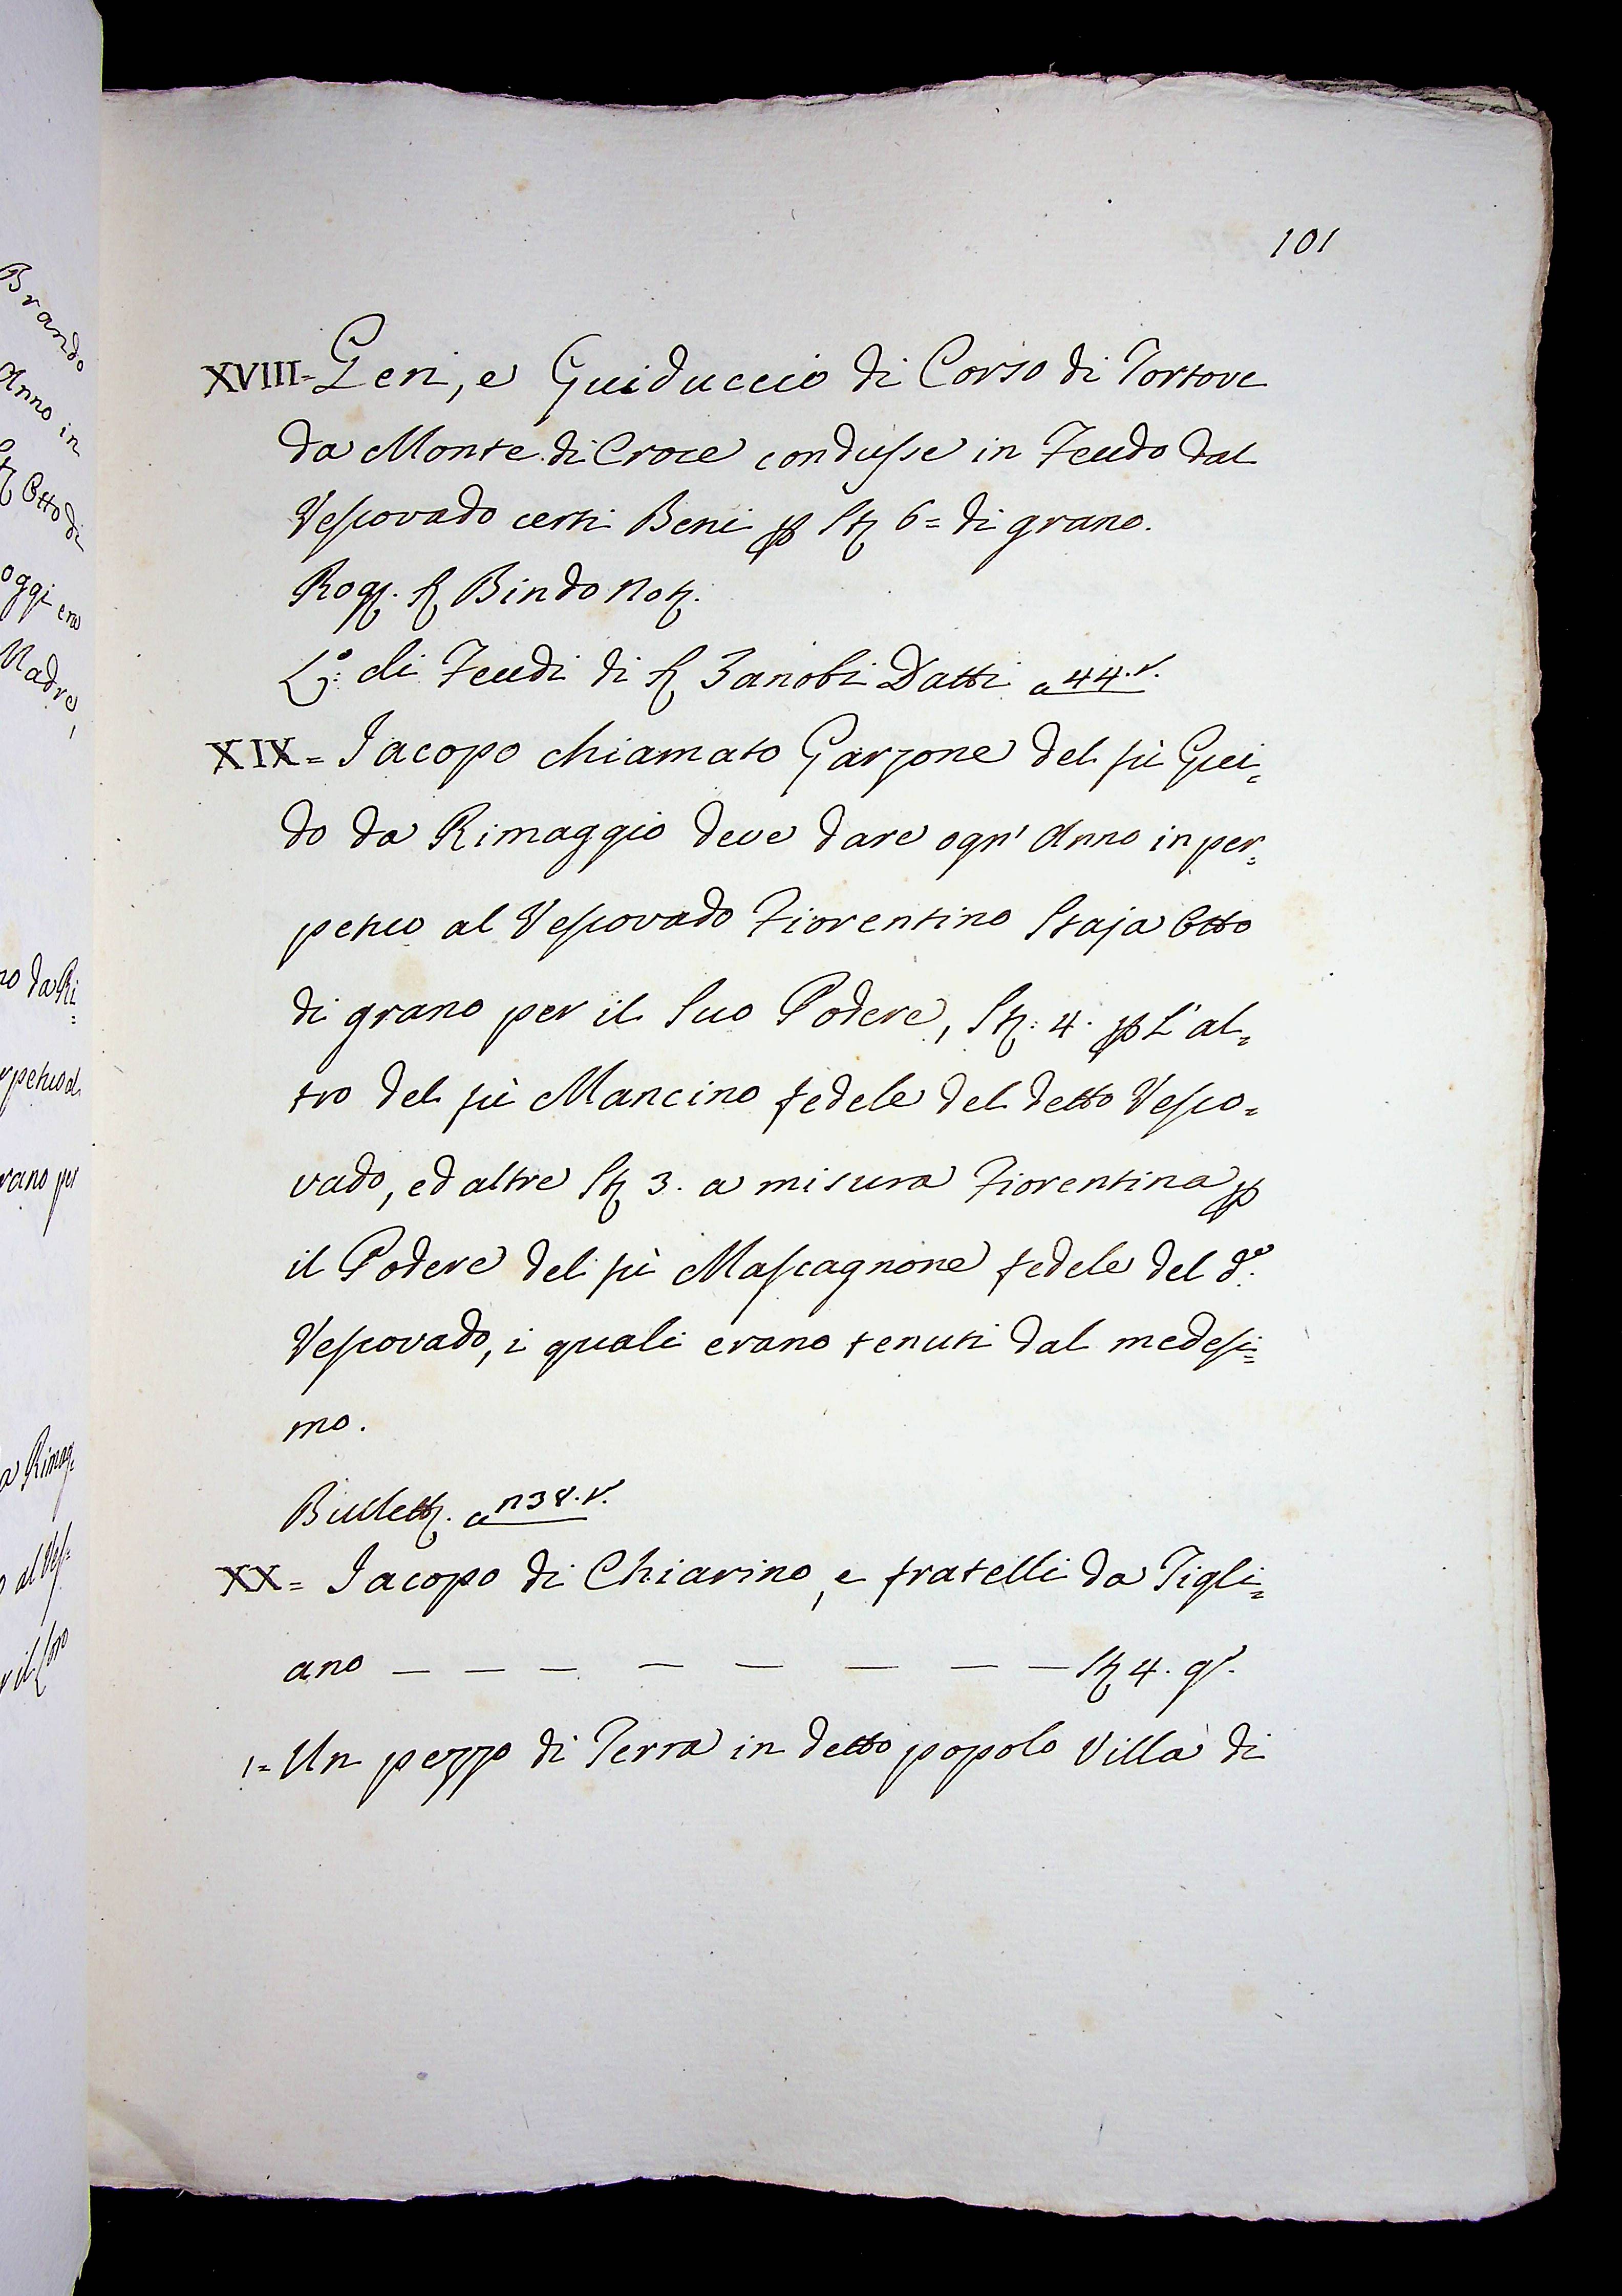 101
XVIII= Geri, e Guiduccio di Corso di Tortove
da Monte di Croce condusse in Feudo dal
Vescovado certi Beni p Stȝ 6= di grano.
Rogȝ. Sȝ Bindo Notȝ.
L.º di Feudi di Sȝ Zanobi Datti a 44.v.
XIX= Iacopo chiamato Garzone del fù Gui=
do da Rimaggio deve dare ogn' Anno in per=
petuo al Vescovado Fiorentino Staja Otto
di grano per il Suo Podere, Stȝ: 4. p L'al=
tro del fù Mancino fedele del detto Vesco=
vado, ed altre Stȝ 3. a misura Fiorentina p
il Podere del fù Mascagnone fedele del d.º
Vescovado, i quali erano tenuti dal medesi=
mo.
Bullettȝ. a n38.v.
XX= Iacopo di Chiarino, e fratelli da Tigli=
ano — — — — — — — — Stȝ 4. gº.
1= Un pezzo di Terra in detto popolo Villa di
Brando
Anno in
Otto di
oggi era
Madre,
no da Ri=
rpetuo al
rano per
a Rimag=
o al Ves=
r il Loro